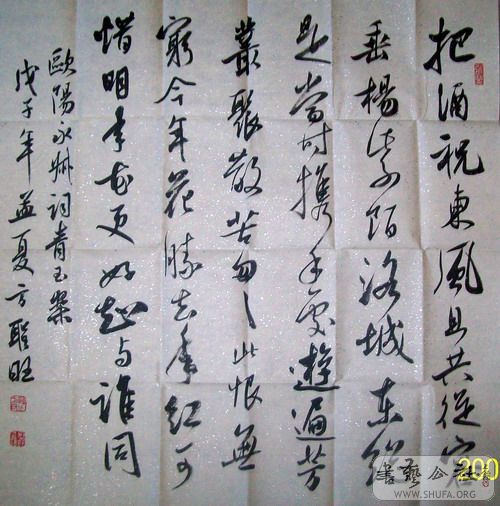 把酒祝東風且共從容
垂楊紫陌洛城東總
是當時携手處遊遍芳
叢聚散苦匆々此恨無
窮今年花勝去年紅可
惜明年花更好知与誰同
歐陽永叔詞青玉案
戊子年孟夏方旺
200
書藝公社
WWW.SHUFA.ORG